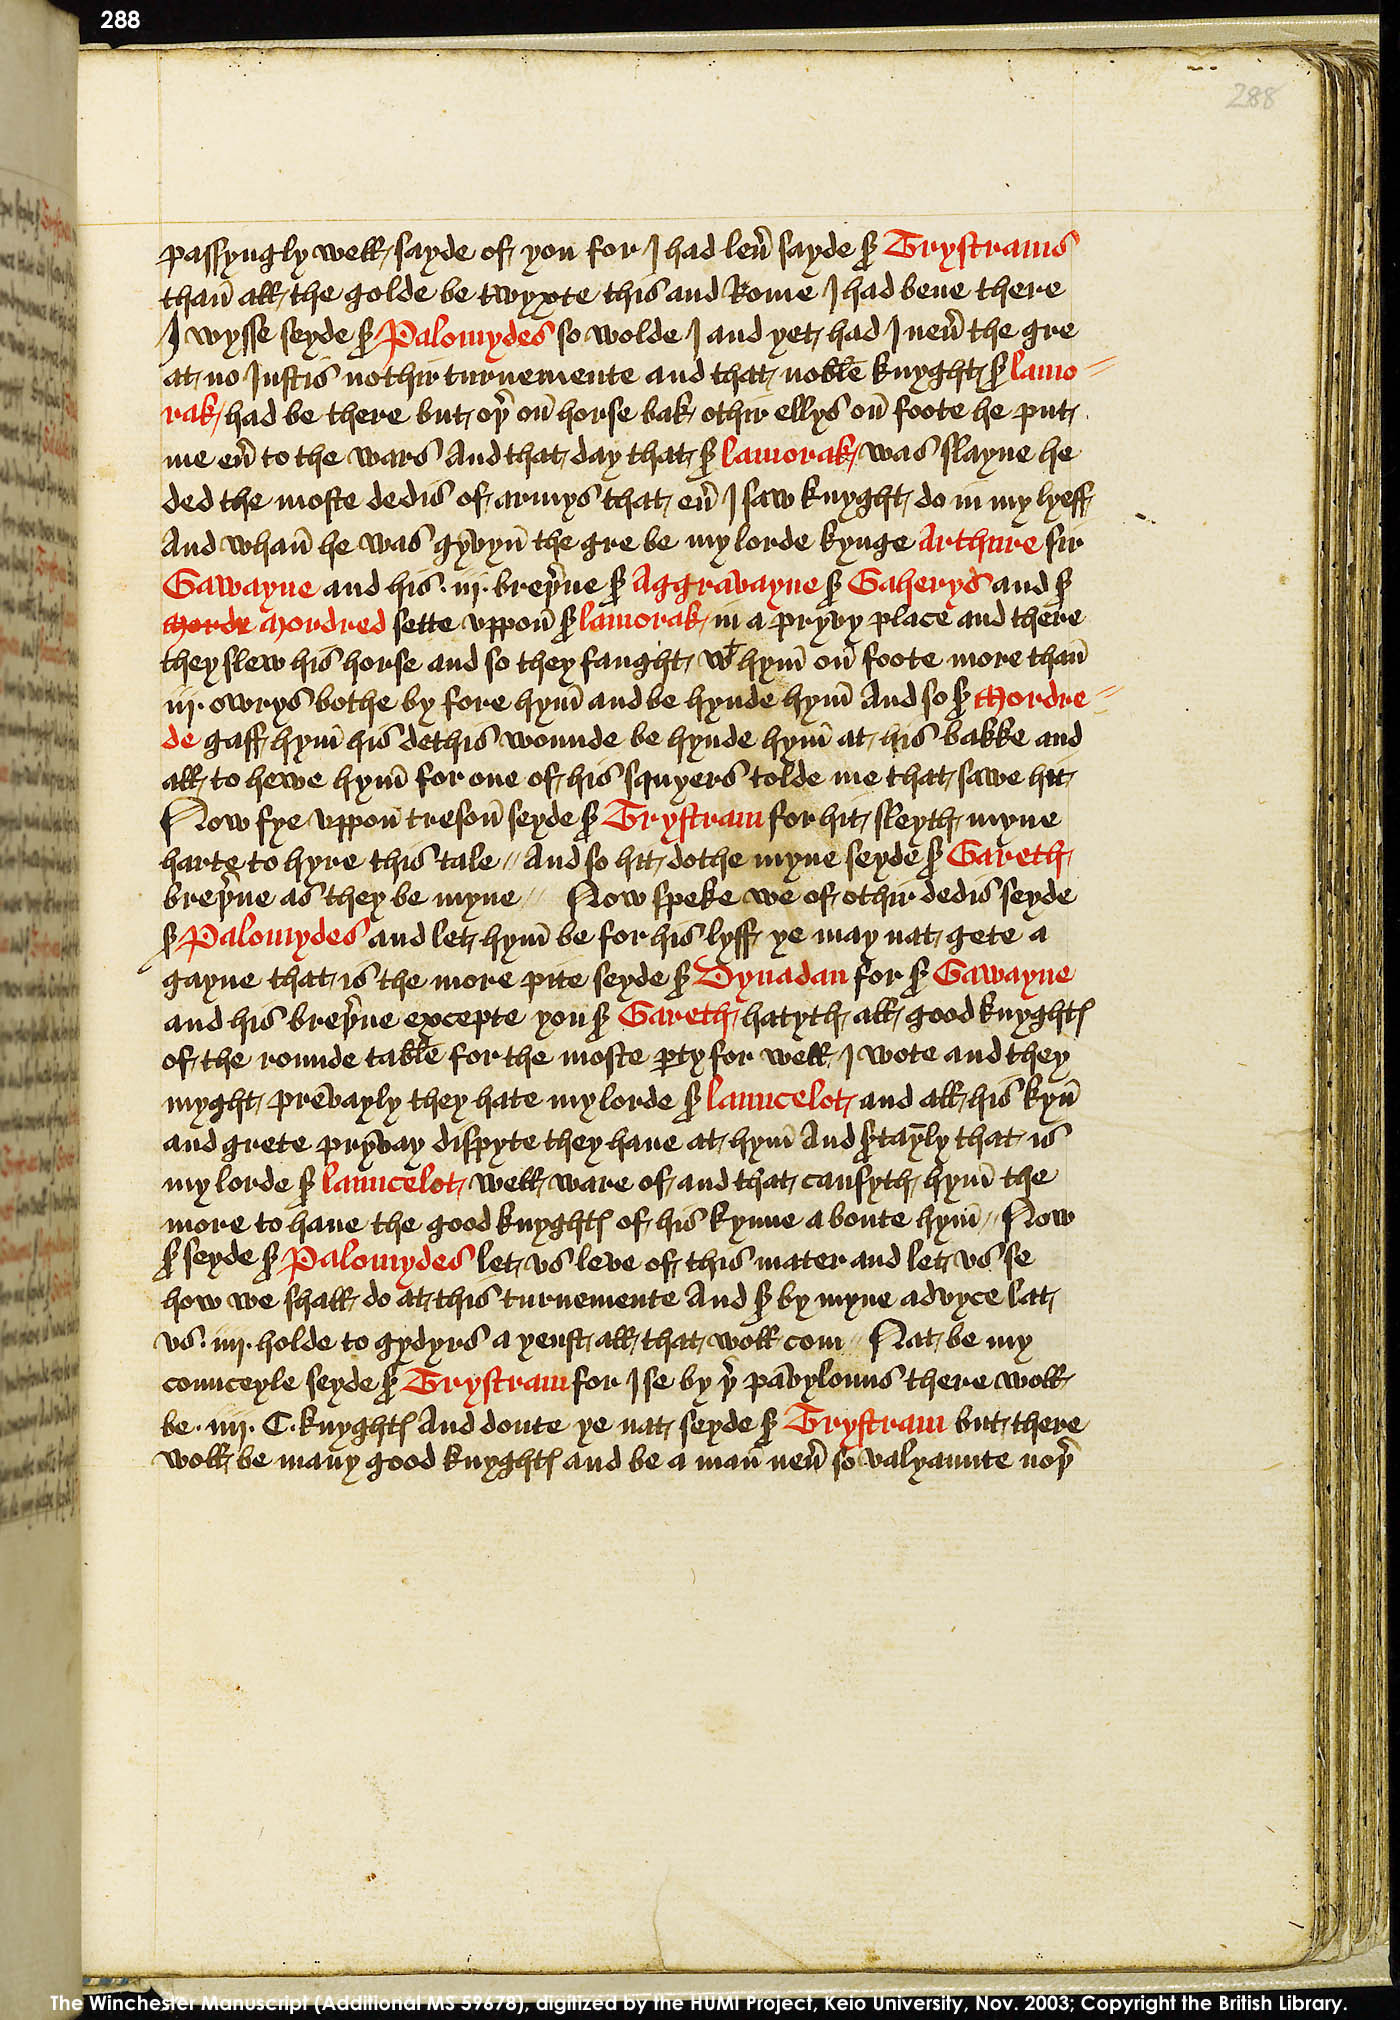 288
288
passyngly well sayde of you for I had leũ sayde ẜ Trystrams
thañ all the golde be twyxte this and Rome I had bene there
I wysse seyde ẜ Palomydes so wolde I and yet had I neũ the gre
at no Justis nothir turnemente and that noble knyght ẜ lamo
rak had be there but oþ̉ oñ horse bak othir ellys oñ foote he put
me eũ to the wars And that day that ẜ lamorak was slayne he
ded the moste dedis of armys that eũ I saw knyght do in my lyeff
And whañ he was gyvyñ the gre be my lorde kynge Arthure sir
Gawayne and his .iij. breþ̉ne ẜ Aggravayne ẜ Gaherys and ẜ
Mordr Mordred sette uppoñ ẜ lamorak in a pryvy place and there
they slew his horse and so they faught wᵗ hym̃ oñ foote more thañ
iij. owrys bothe by fore hym̃ and be hynde hym̃ And so ẜ Mordre
de gaff hym̃ his dethis wounde be hynde hym̃ at his bakke and
all to hewe hym̃ for one of his squyers tolde me that sawe hit
Now fye uppoñ tresoñ seyde ẜ Trystram for hit sleyth myne
harte to hyre this tale // And so hit dothe myne seyde ẜ Gareth
breþ̉ne as they be myne // Now speke we of othir dedis seyde
ẜ Palomydes and let hym̃ be for his lyff ye may nat gete a
gayne that is the more pite seyde ẜ Dynadan for ẜ Gawayne
and his breþ̉ne excepte you ẜ Gareth hatyth all good knyghtꝭ
of the rounde table for the moste ꝑty for well I wote and they
myght prevayly they hate my lorde ẜ launcelot and all his kyñ
and grete pryvay dispyte they have at hym̃ And ẜtayly that is
my lorde ẜ launcelot well ware of and that causyth hym̃ the
more to have the good knyghtꝭ of his kynne aboute hym̃ // Now
ẜ seyde ẜ Palomydes let us leve of this mater and let us se
how we shall do at this turnemente And ẜ by myne advyce lat
us .iiij. holde to gydyrs a yenst all that woll com // Nat be my
counceyle seyde ẜ Trystram for I se by þ̉ pavylouns there woll
be .iiij. C. knyghtꝭ And doute ye nat seyde ẜ Trystram but there
woll be many good knyghtꝭ and be a mañ neũ so valyaunte noþ̉
The Winchester Manuscript (Additional MS 59678), digitized by the HUMI Project, Keio University, Nov. 2003; Copyright the British Library.